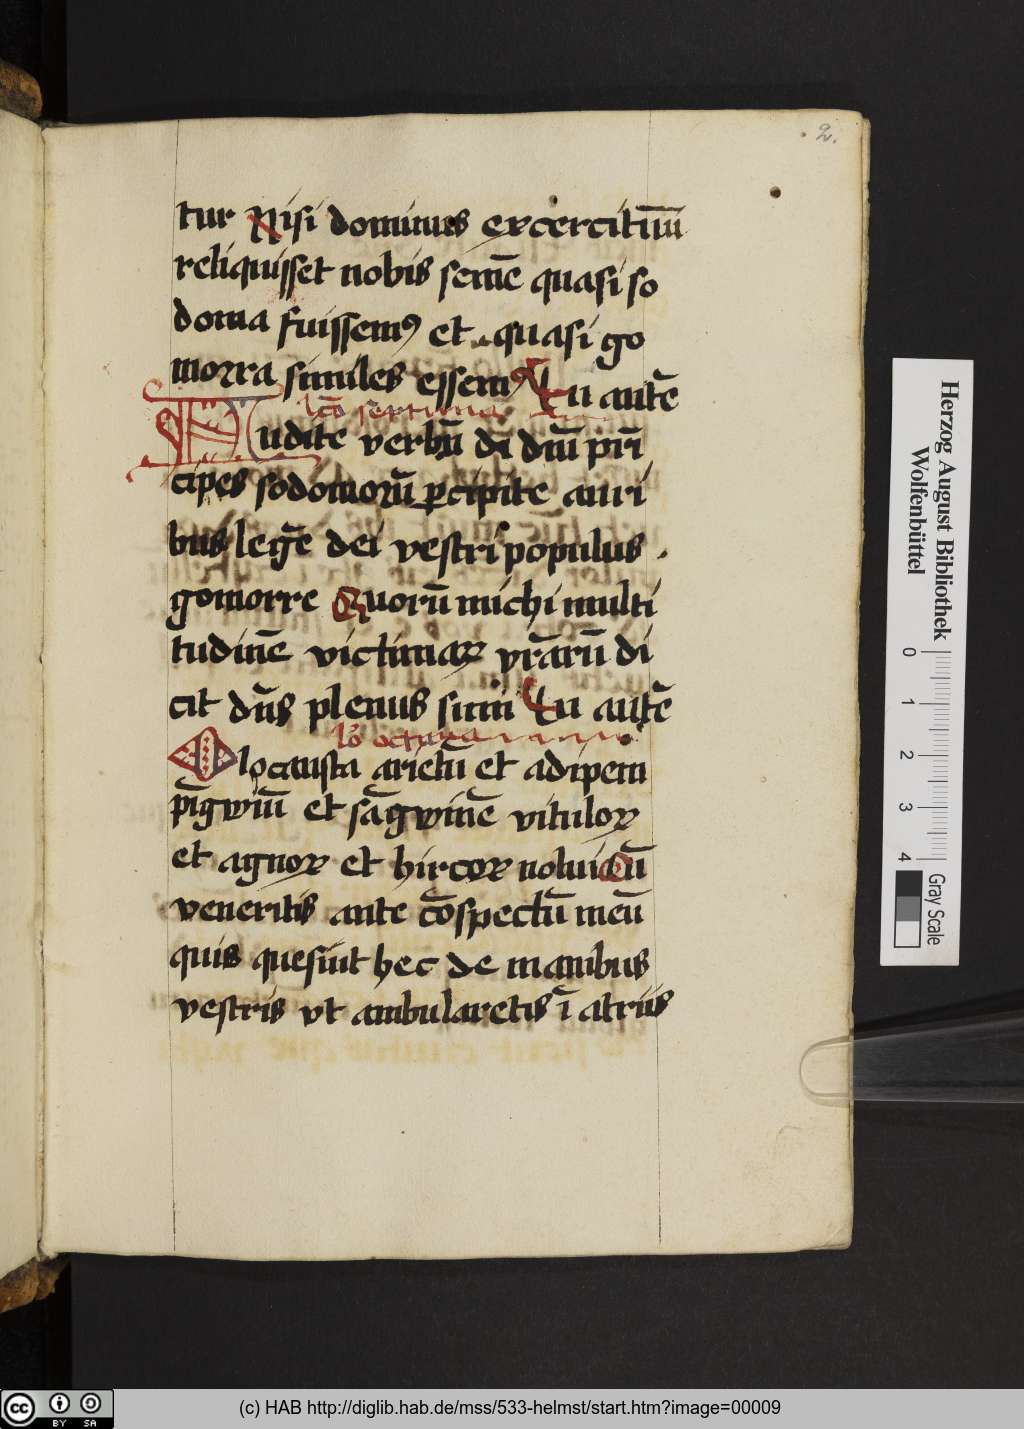 2.
tur Nisi dominus excercituū
reliquisset nobis semē quasi so
doma fuissemꝰ et quasi go
morra similes essemꝰ Tu autē
lcō septima
Audite verbū di dm̄ prī
cipes sodomorū ꝑcipite auri
bus legē dei vestri populus
gomorre Quorū michi multi
tudinē victimaꝝ vr̄arū di
cit dn̄s plenus sum Tu autē
lcō octaua
Olocausta arietū et adipem
pīgwiū et sāgwinē vituloꝝ
et agnoꝝ et hircoꝝ nolui Cū
veneritis ante cōspectū meū
quis quesiuit hec de manibus
vestris vt ambularetis ī atriis
Herzog August Bibliothek
Wolfenbüttel
0 1 2 3 4
Gray Scale
cc BY SA
(c) HAB http://diglib.hab.de/mss/533-helmst/start.htm?image=00009